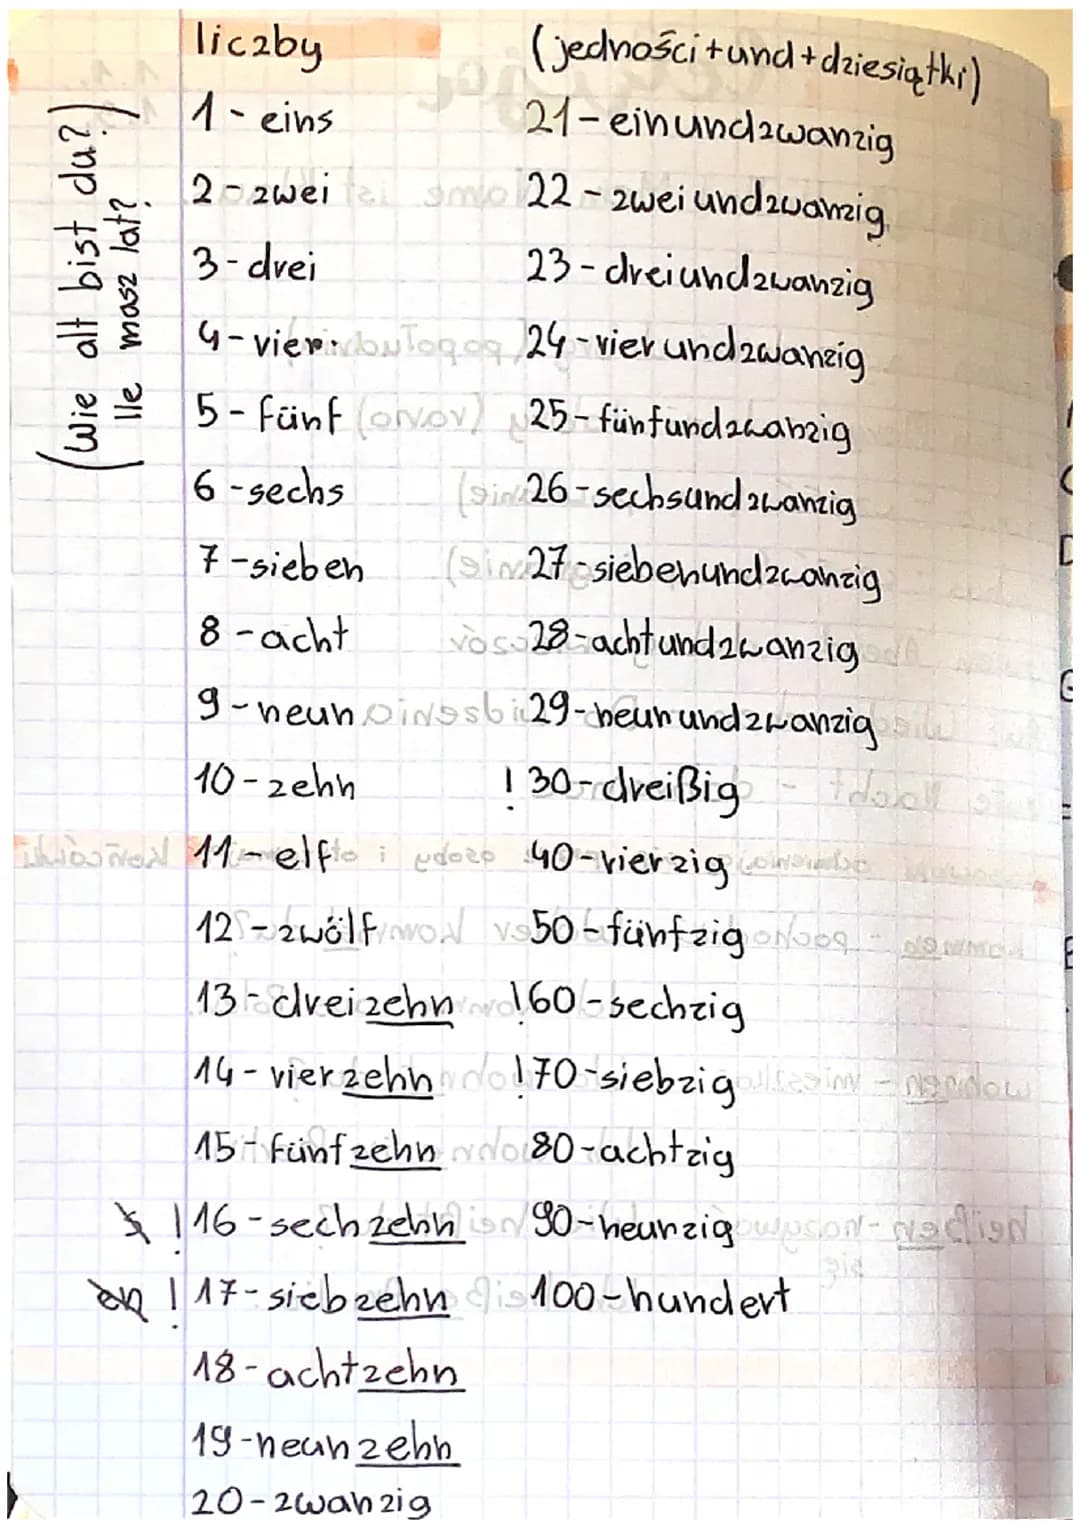 liczby
(jedności+und+dziesiątki)
(Wie alt bist du?)
Ile masz lat?
1 - eins
2 - zwei
3 - drei
4 - vier
5 - fünf
6 - sechs
7 - sieben
8 - acht
9 - neun
10 - zehn
11 - elf
12 - zwölf
13 - dreizehn
14 - vierzehn
15 - fünfzehn
s ! 16 - sechzehn
en ! 17 - siebzehn
18 - achtzehn
19 - neunzehn
20 - zwanzig
21 - einundzwanzig
22 - zweiundzwanzig
23 - dreiundzwanzig
24 - vierundzwanzig
25 - fünfundzwanzig
26 - sechsundzwanzig
27 - siebenundzwanzig
28 - achtundzwanzig
29 - neunundzwanzig
! 30 - dreißig
40 - vierzig
50 - fünfzig
! 60 - sechzig
! 70 - siebzig
80 - achtzig
90 - neunzig
100 - hundert